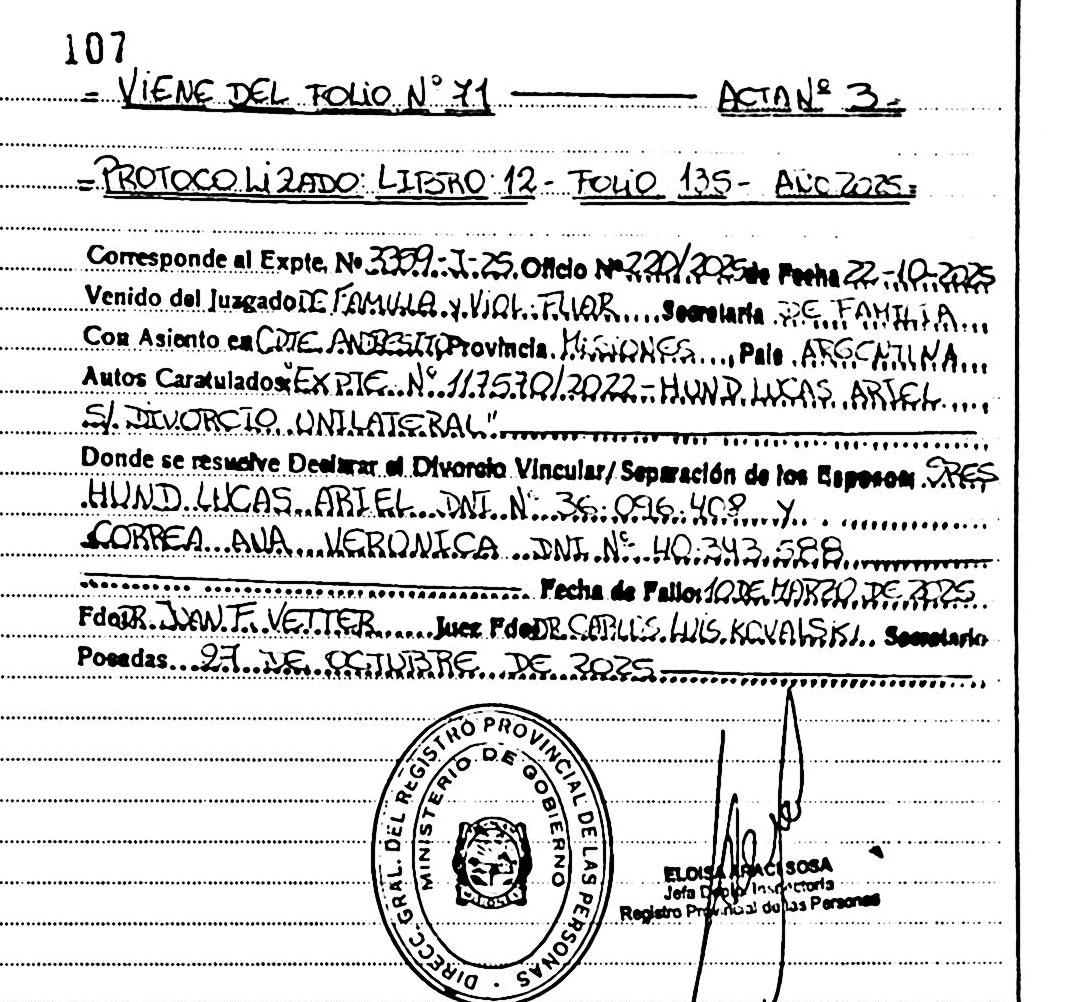 107
= VIENE DEL FOLIO Nº 71 ——— ACTA Nº 3 =
= PROTOCOLIZADO: LIBRO: 12 - FOLIO 135 - AÑO 2025 =
Corresponde al Expte. Nº 3359-I-25. Oficio Nº 220/2025 de Fecha 22-10-2025
Venido del Juzgado DE FAMILIA y VIOL. FLIAR.... Secretaría DE FAMILIA...
Con Asiento en CDTE. ANDRESITO Provincia MISIONES..., País ARGENTINA...
Autos Caratulados: "EXPTE. Nº 117570/2022 - HUND LUCAS ARIEL
S/. DIVORCIO UNILATERAL"
Donde se resuelve Declarar el Divorcio Vincular/ Separación de los Esposos: SRES
HUND LUCAS ARIEL DNI Nº 36.096.408 Y
CORREA ANA VERONICA DNI Nº 40.343.588
Fecha de Fallo: 10 DE MARZO DE 2025
Fdo DR. JUAN F. VETTER..... Juez Fdo DR CARLOS LUIS KOVALSKI.. Secretario
Posadas... 27 DE OCTUBRE DE 2025
DIRECC. GRAL. DEL REGISTRO PROVINCIAL DE LAS PERSONAS
MINISTERIO DE GOBIERNO
ELOISA ARACI SOSA
Jefa Depto Inspectoría
Registro Provincial de las Personas